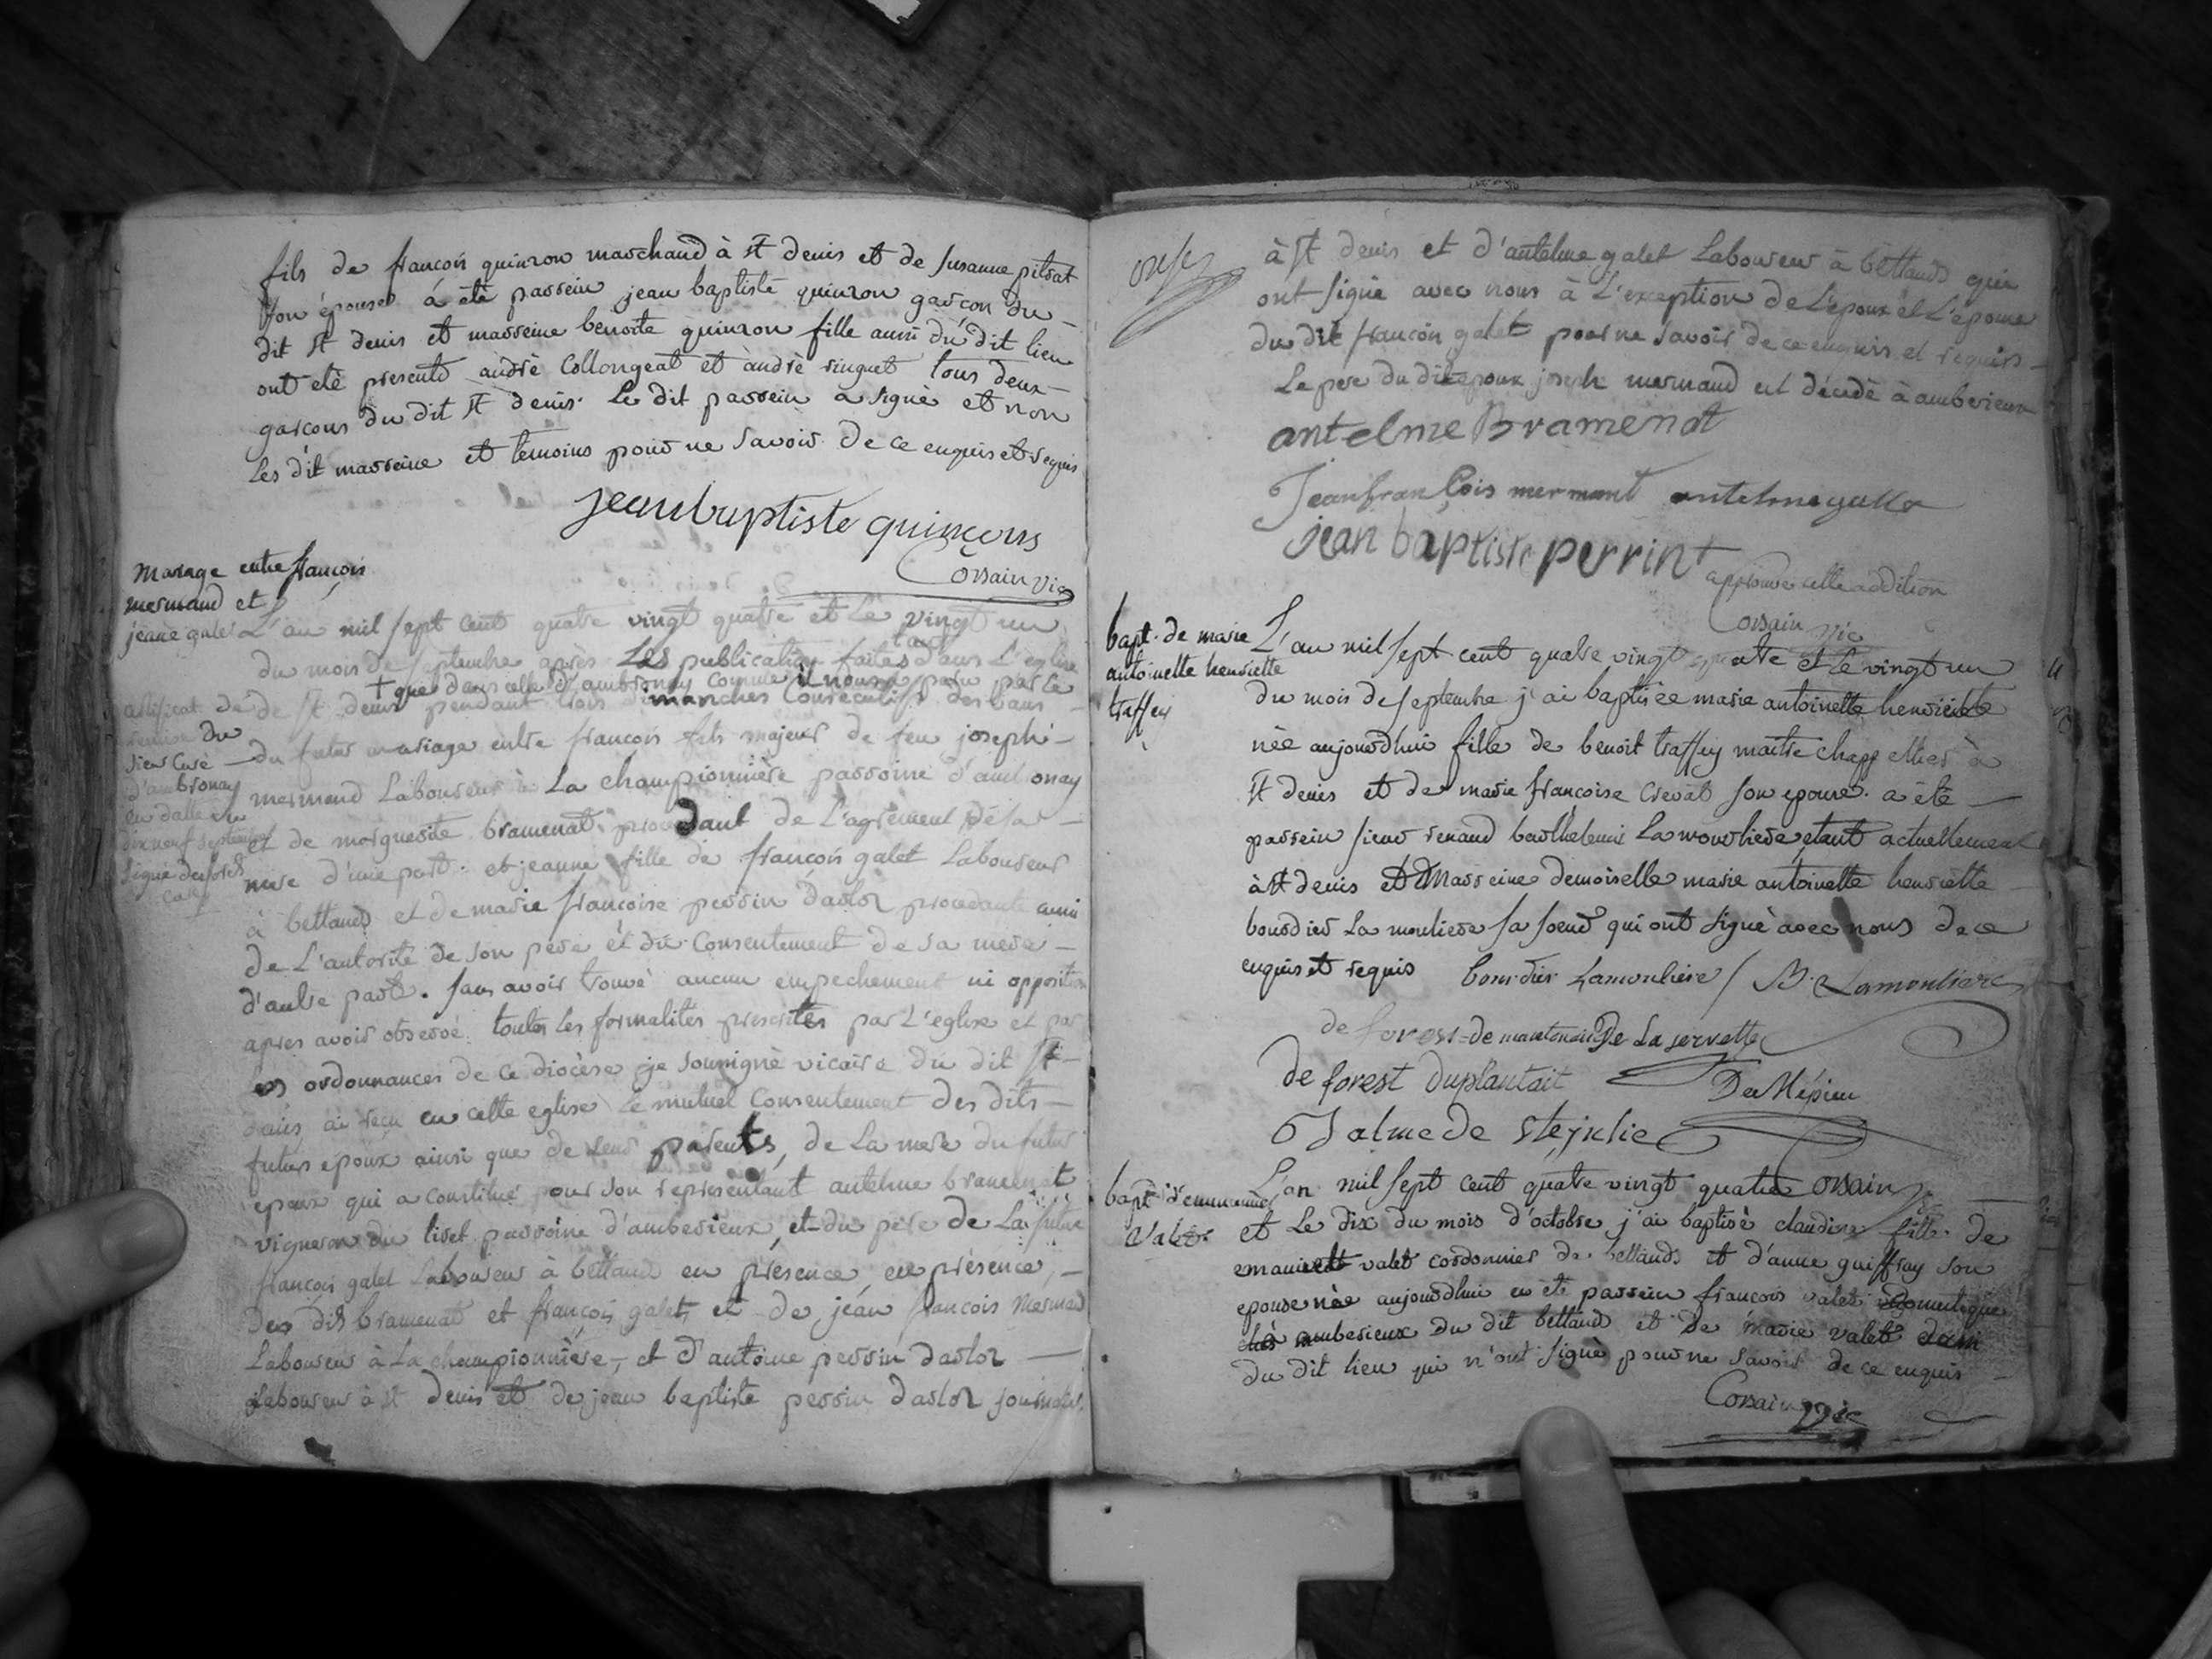 fils de françois quinzon marchand à st denis et de susanne pitrat
son épouse à été parrein jean baptiste quinzon garçon du
dit st denis et marreine benoite quinzon fille aussi du dit lieu
ont eté presents andrè Collongeat et andrè ringuet tous deux
garçons du dit st denis. Le dit parrein a signè et non
Les dit marreine et temoins pour ne savoir de ce enquis et requis
jean baptiste quinçons
Corsain vic
Mariage entre françois
mermand et
jeane galet
L'an mil sept cent quatre vingt quatre et Le vingt un
du mois de septembre après Les publications faites tant dans L'eglise
+ que dans celle d'ambronay comme il nous a paru par le
de st denis pendant trois dimanches consecutifs des bans
attificat de
remise du
sieur Curé
d'ambronay
en datte du
dix neuf septembre
signè
curé
du futur mariage entre françois fils majeur de feu joseph
mermand Laboureur à La championnière parroine d'ambronay
et de marguerite bramenat procedant de L'agrèment de sa
mere d'une part. et jeanne fille de françois galet Laboureur
à bettand et de marie françoise perrin darloz procedante aussi
de L'autorité de son père et du Consentement de sa mere
d'autre part. sans avoir trouvé aucun empechement ni opposition
apres avoir observé toutes les formalités prescrites par L'eglise et par
les ordonnances de ce diocèse je soussignè vicaire du dit st
denis ai reçu en cette eglise le mutuel Consentement des dits
futurs epoux ainsi que de leurs parents, de La mere du futur
epoux qui a constitué pour son representant antelme bramenat
vigneron du tiret parroine d'amberieux, et du père de La future
françois galet Laboureur à bettand en présence en présence,
des dits bramenat et françois galet et de jean françois mermand
Laboureur à La championnière, et d'antoine perrin darloz
Laboureur à st denis et de jean baptiste perrin darloz journalier
à st denis et d'antelme galet Laboureur à bettand qui
ont signé avec nous à L'exception de L'epoux et L'epouse
du dit françois galet pour ne savoir de ce enquis et requis
Le père du dit epoux joseph mermand est décédé à amberieux
antelme Bramenat
Jean françois mermant antelme gallet
jean baptiste perrint
approuve cette addition
Corsain vic
bapt. de marie
antoinette henriette
traffey
L'an mil sept cent quatre vingt quatre et Le vingt un
du mois de septembre j'ai baptisée marie antoinette henriette
née aujourdhui fille de benoit traffey maitre chappellier à
st denis et de marie françoise crevat son epouse. a été
parrein sieur renaud barthelemi La mouliere etant actuellement
à st denis et Marreine demoiselle marie antoinette henriette
bourdier La mouliere sa soeur qui ont signé avec nous de ce
enquis et requis bourdier Lamoulière / B. Lamouliere
de forest de La servette
de forest duplantait De Mépieu
Corsain
bapt
Valet
L'an mil sept cent quatre vingt quatre
et Le dix du mois d'octobre j'ai baptisè claudine fille de
emanuelt valet cordonnier de bettand et d'anne guiffray son
epouse née aujourdhui en été parrein françois valet domestique
amberieux du dit bettand et de marie valet
du dit lieu qui n'ont signè pour ne savoir de ce enquis
Corsain vic